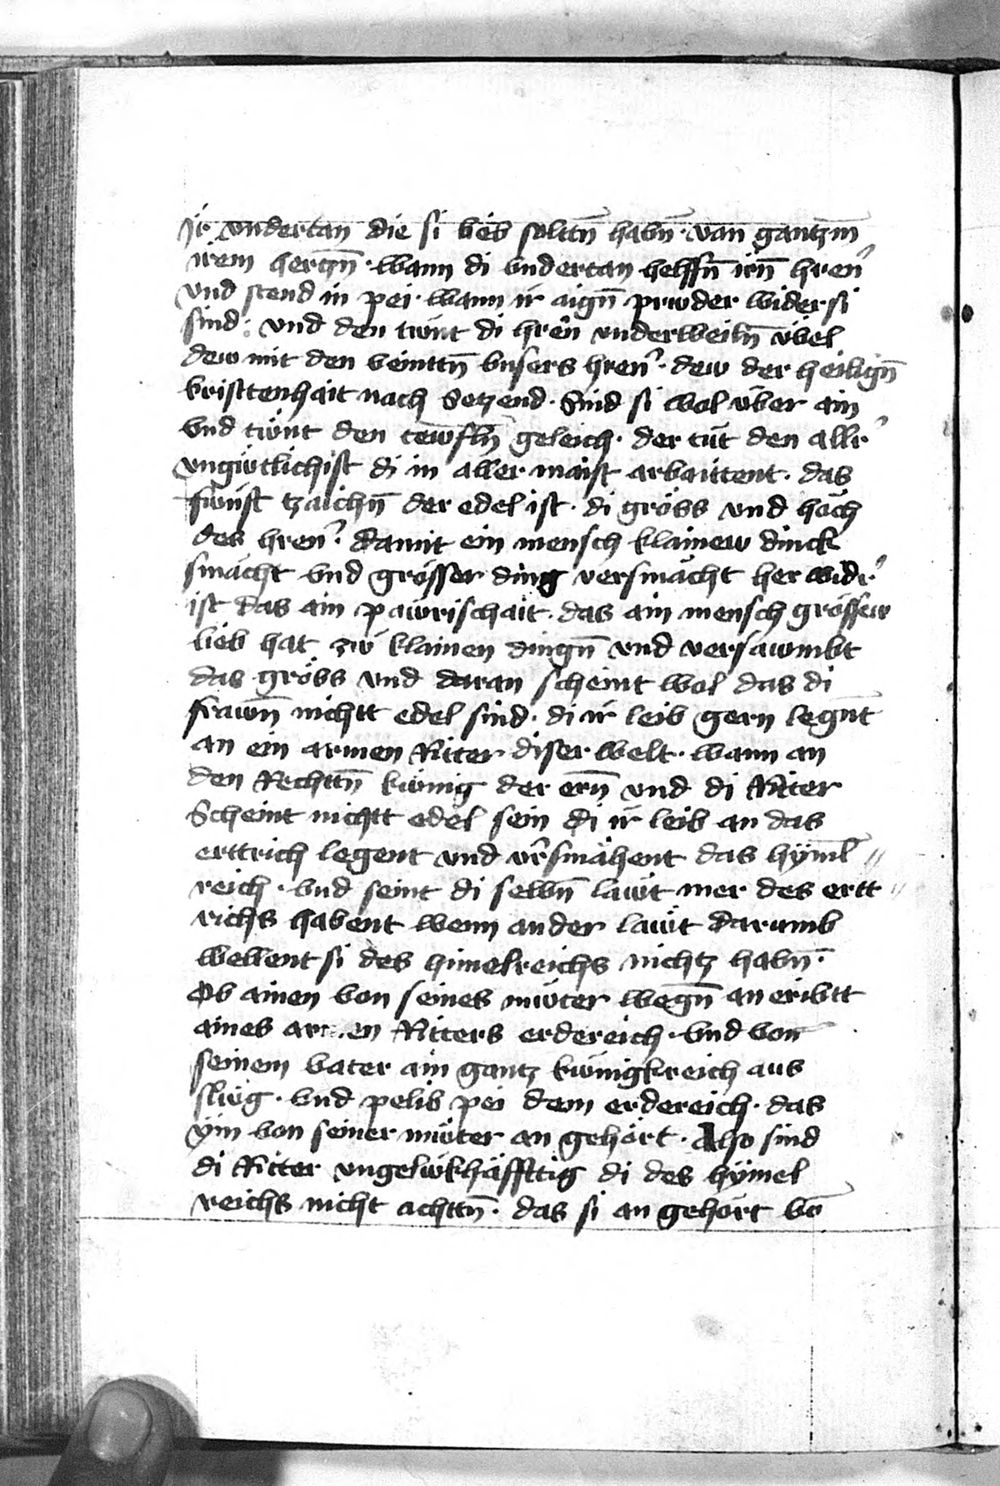 Ir vndertan die si lieb soltn̄ habn̄ · van gantzm̄
irem herczn̄ · wann di vndertan helffn̄ irn̄ hren̄
vnd stend in pei · wann ir aign̄ prwder wider si
sind · vnd den twnt di hren̄ vnderweiln̄ vbel
dew mit den veinttn̄ vnsers hren̄ · dew der heilign̄
kristtenhait nach Setzend · Sind si wol vber ain
vnd twnt den tewfln̄ geleich · der tut den allr̄
vngwtlichist di in aller maist arbaittent · das
fwnft tzaichn̄ der edel ist · di gröss vnd höch
des hren̄ · damit ein mensch klainew dinck
smächt vnd grösser ding versmächt her widr̄
ist das ain pawrischait · das ain mensch grössew
lieb hat zw klainen dingn̄ vnd versawmbt
das gröss vnd daran scheint wol das di
frawn̄ nichtt edel sind · di ir leib gern legn̄t
an ein armen Ritter diser welt · wann an
den Rechttn̄ kwnig der ern̄ vnd di Ritter
Scheint nichtt edel sein di ir leib an das
erttrich legent vnd vr̄smähent das hÿml̄
reich · vnd seint di selbn̄ läwt mer des ertt
richs habent wenn ander läwt darumb
wellent si des himelreichs nichtz habn̄ ·
Ob ainen von seines mwter wegn̄ an eribtt
aines ar en Ritters erdereich · vnd von
seinem vater ain gantz kwnigkreich aus
slwg · vnd pelib pei dem erdereich · das
ÿm von seiner mwter an gehört · Also sind
di Ritter vngelwkhäfftig di des hÿmel
reichs nicht achttn̄ · das si an gehört vō